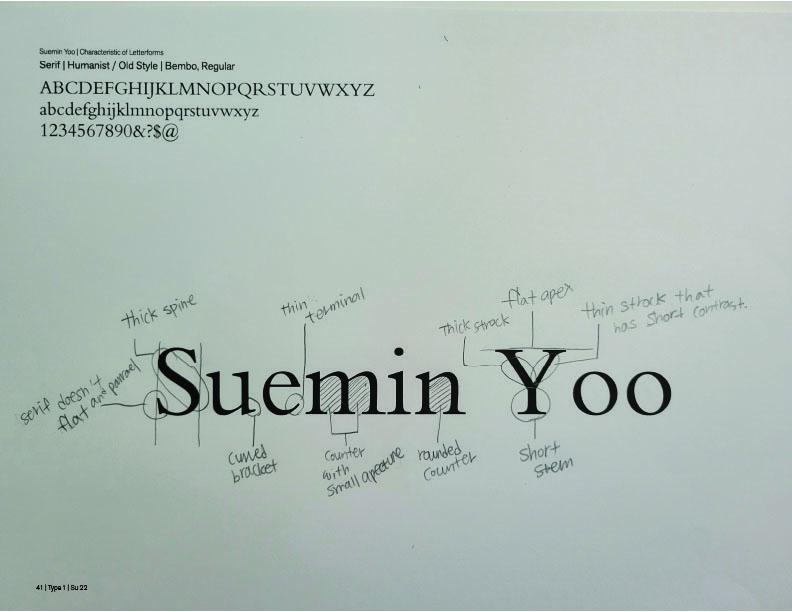 Suemin Yoo | Characteristic of Letterforms
Serif | Humanist / Old Style | Bembo, Regular
ABCDEFGHIJKLMNOPQRSTUVWXYZ
abcdefghijklmnopqrstuvwxyz
1234567890&?$@
thick spine
thin
terminal
flat apex
thick strock
thin strock that
has short contrast.
serif doesn't
flat and parrael
Suemin Yoo
curved
bracket
counter
with
small aperture
rounded
counter
short
stem
41 | Type 1 | Su 22